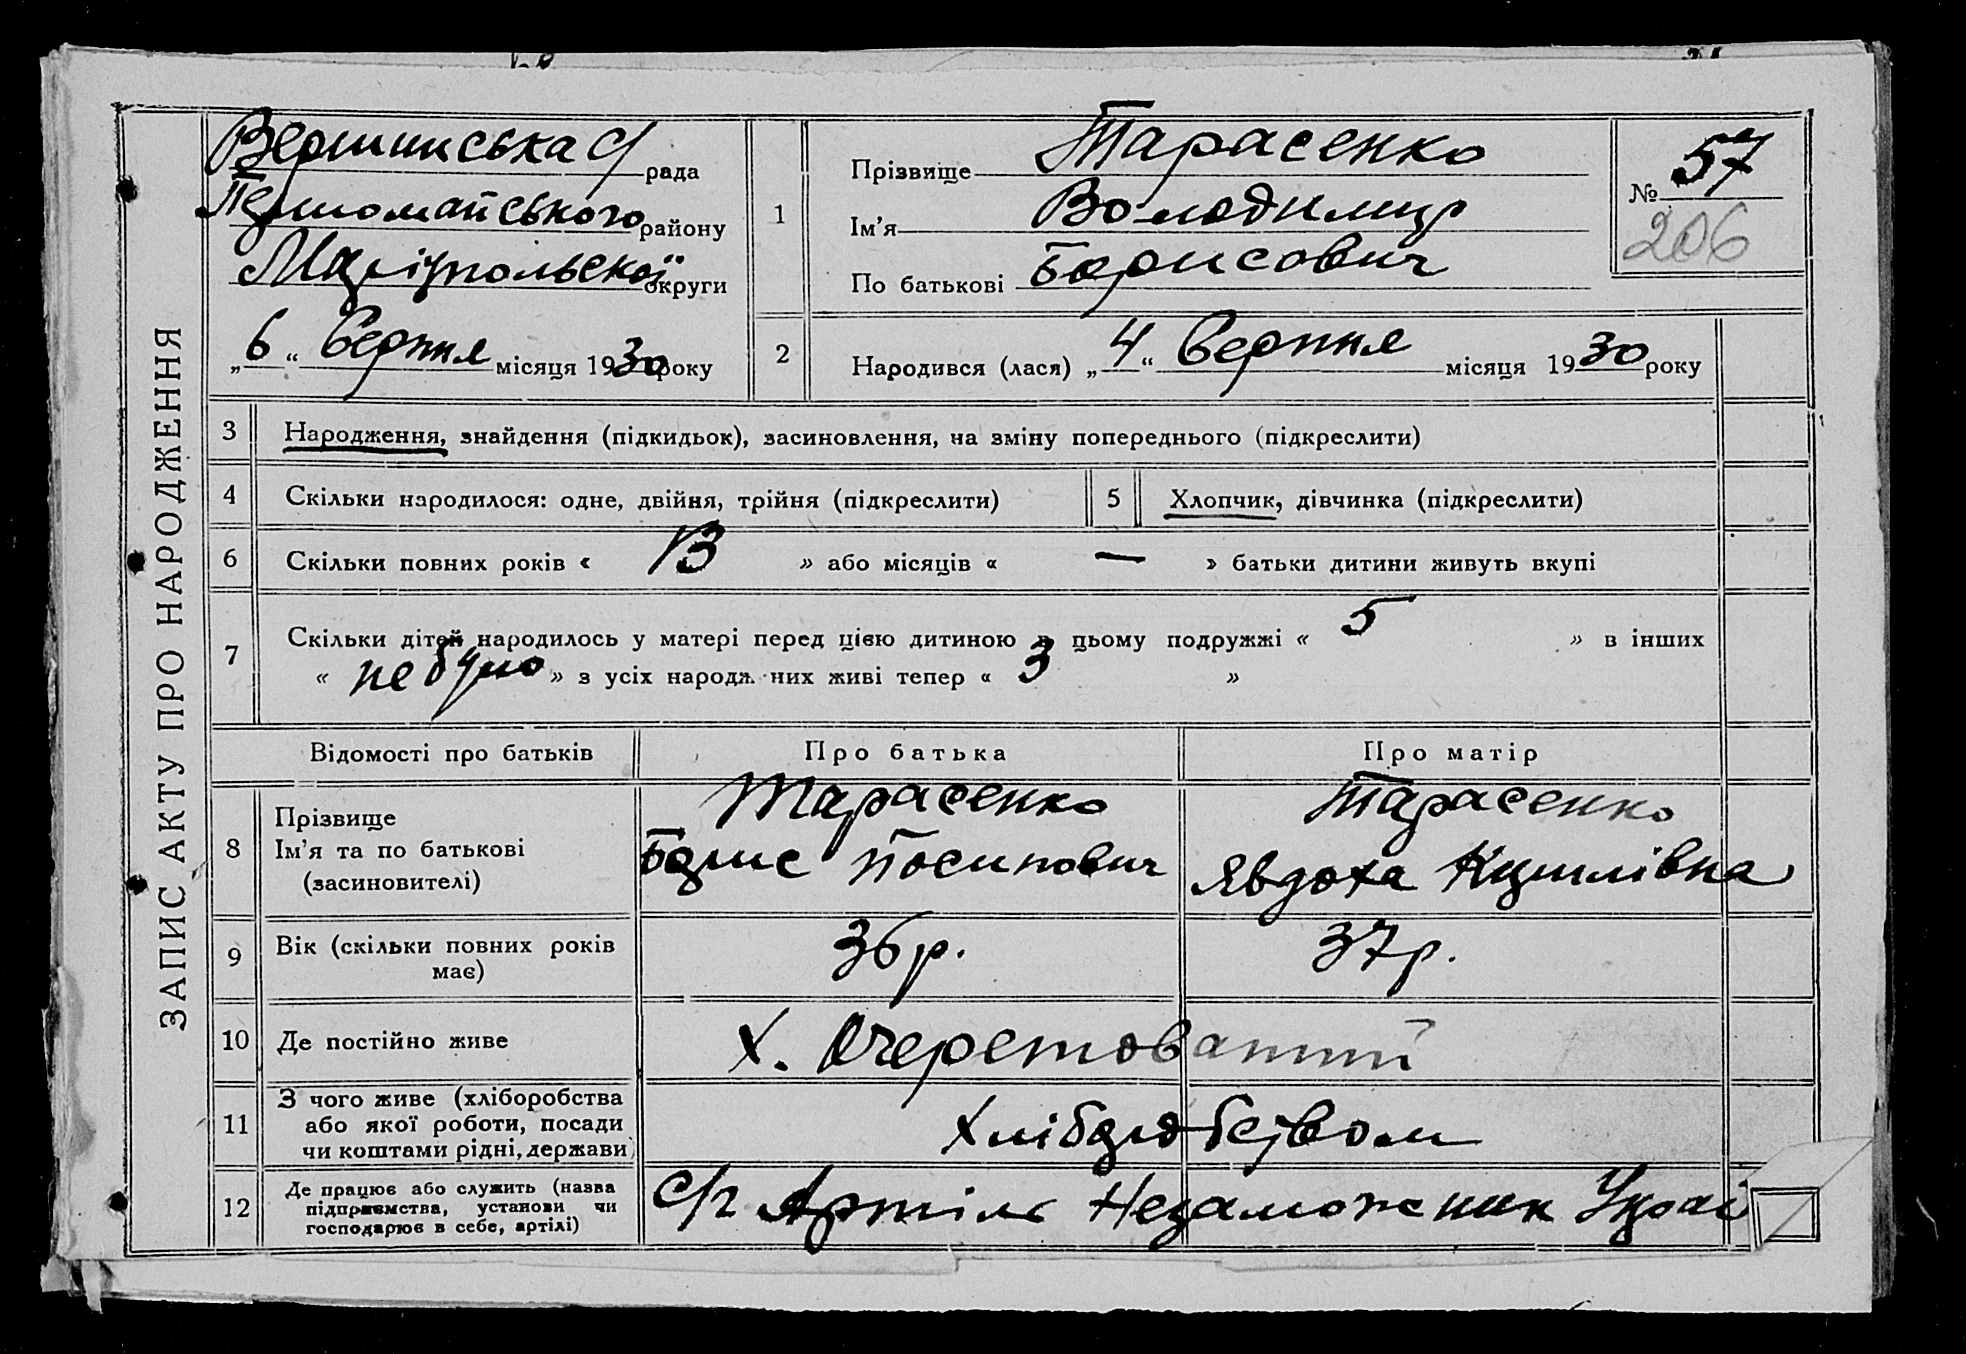 ЗАПИС АКТУ ПРО НАРОДЖЕННЯ
Вершинська с/рада
Першомайського району
Маріупольської округи
„6“ Серпня місяця 1930 року
1
Прізвище Тарасенко
Ім'я Володимир
По батькові Борисович
№ 57
206
2
Народився (лася) „4“ Серпня місяця 1930 року
3 Народження, знайдення (підкидьок), засиновлення, на зміну попереднього (підкреслити)
4 Скільки народилося: одне, двійня, трійня (підкреслити) 5 Хлопчик, дівчинка (підкреслити)
6 Скільки повних років « 13 » або місяців « — » батьки дитини живуть вкупі
7 Скільки дітей народилось у матері перед цією дитиною в цьому подружжі « 5 » в інших
« не було » з усіх народж. них живі тепер « 3 »
Відомості про батьків Про батька Про матір
8 Прізвище Тарасенко Тарасенко
Ім'я та по батькові Борис Йосипович Явдоха Кирилівна
(засиновителі)
9 Вік (скільки повних років має) 36 р. 37 р.
10 Де постійно живе х. Очеретоватий
11 З чого живе (хліборобства
або якої роботи, посади
чи коштами рідні, держави)
Хліборобством
12 Де працює або служить (назва
підприємства, установи чи
господарює в себе, артілі)
с/г Артіль Незаможник Украї